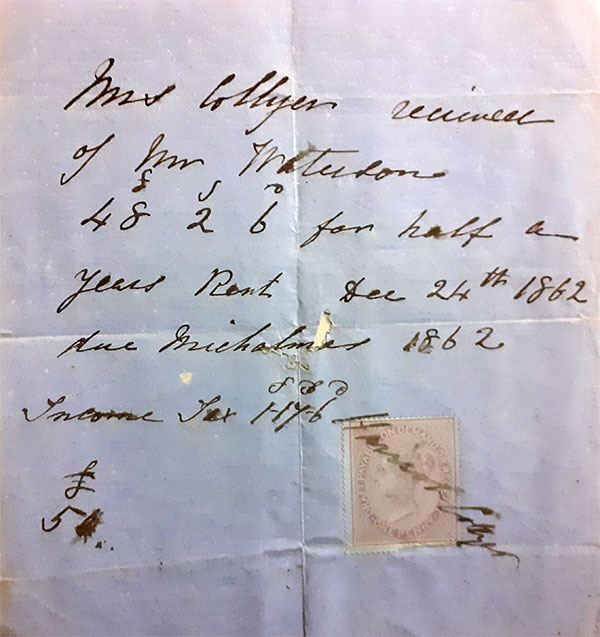 Mrs Collyer received
of Mr Waterson
£ s D
48 2 6 for half a
years Rent Dec 24th 1862
due Michalmas 1862
Income Tax 1-17-6
£ S D
£
50